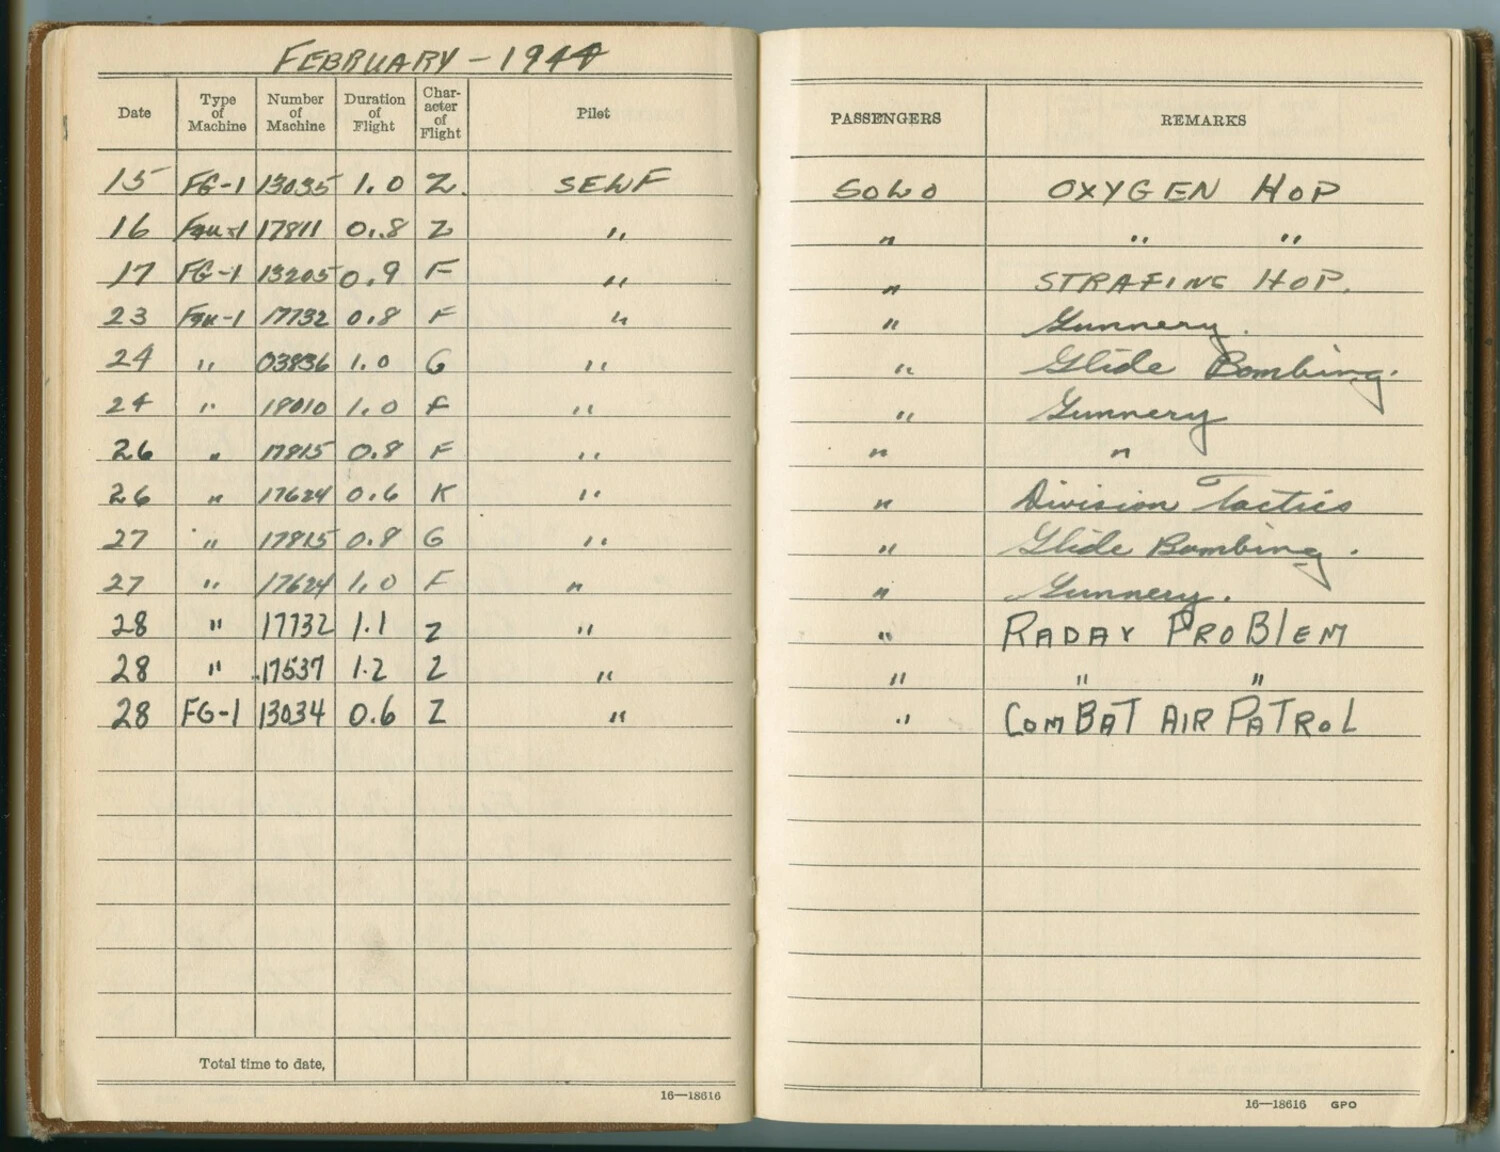 FEBRUARY - 1944
Date Type of Machine Number of Machine Duration of Flight Character of Flight Pilot PASSENGERS REMARKS
15 FG-1 13035 1.0 Z. SELF SOLO OXYGEN HOP
16 F4U-1 17811 0.8 Z " " " "
17 FG-1 13205 0.9 F " " STRAFING HOP.
23 F4U-1 17732 0.8 F " " Gunnery.
24 " 03836 1.0 G " " Glide Bombing.
24 " 18010 1.0 F " " Gunnery
26 " 17815 0.8 F " " "
26 " 17624 0.6 K " " Division Tactics
27 " 17815 0.8 G " " Glide Bombing.
27 " 17624 1.0 F " " Gunnery.
28 " 17732 1.1 Z " " RADAR PROBLEM
28 " 17537 1.2 Z " " " "
28 FG-1 13034 0.6 Z " " COMBAT AIR PATROL
Total time to date,
16—18616
16—18616 GPO